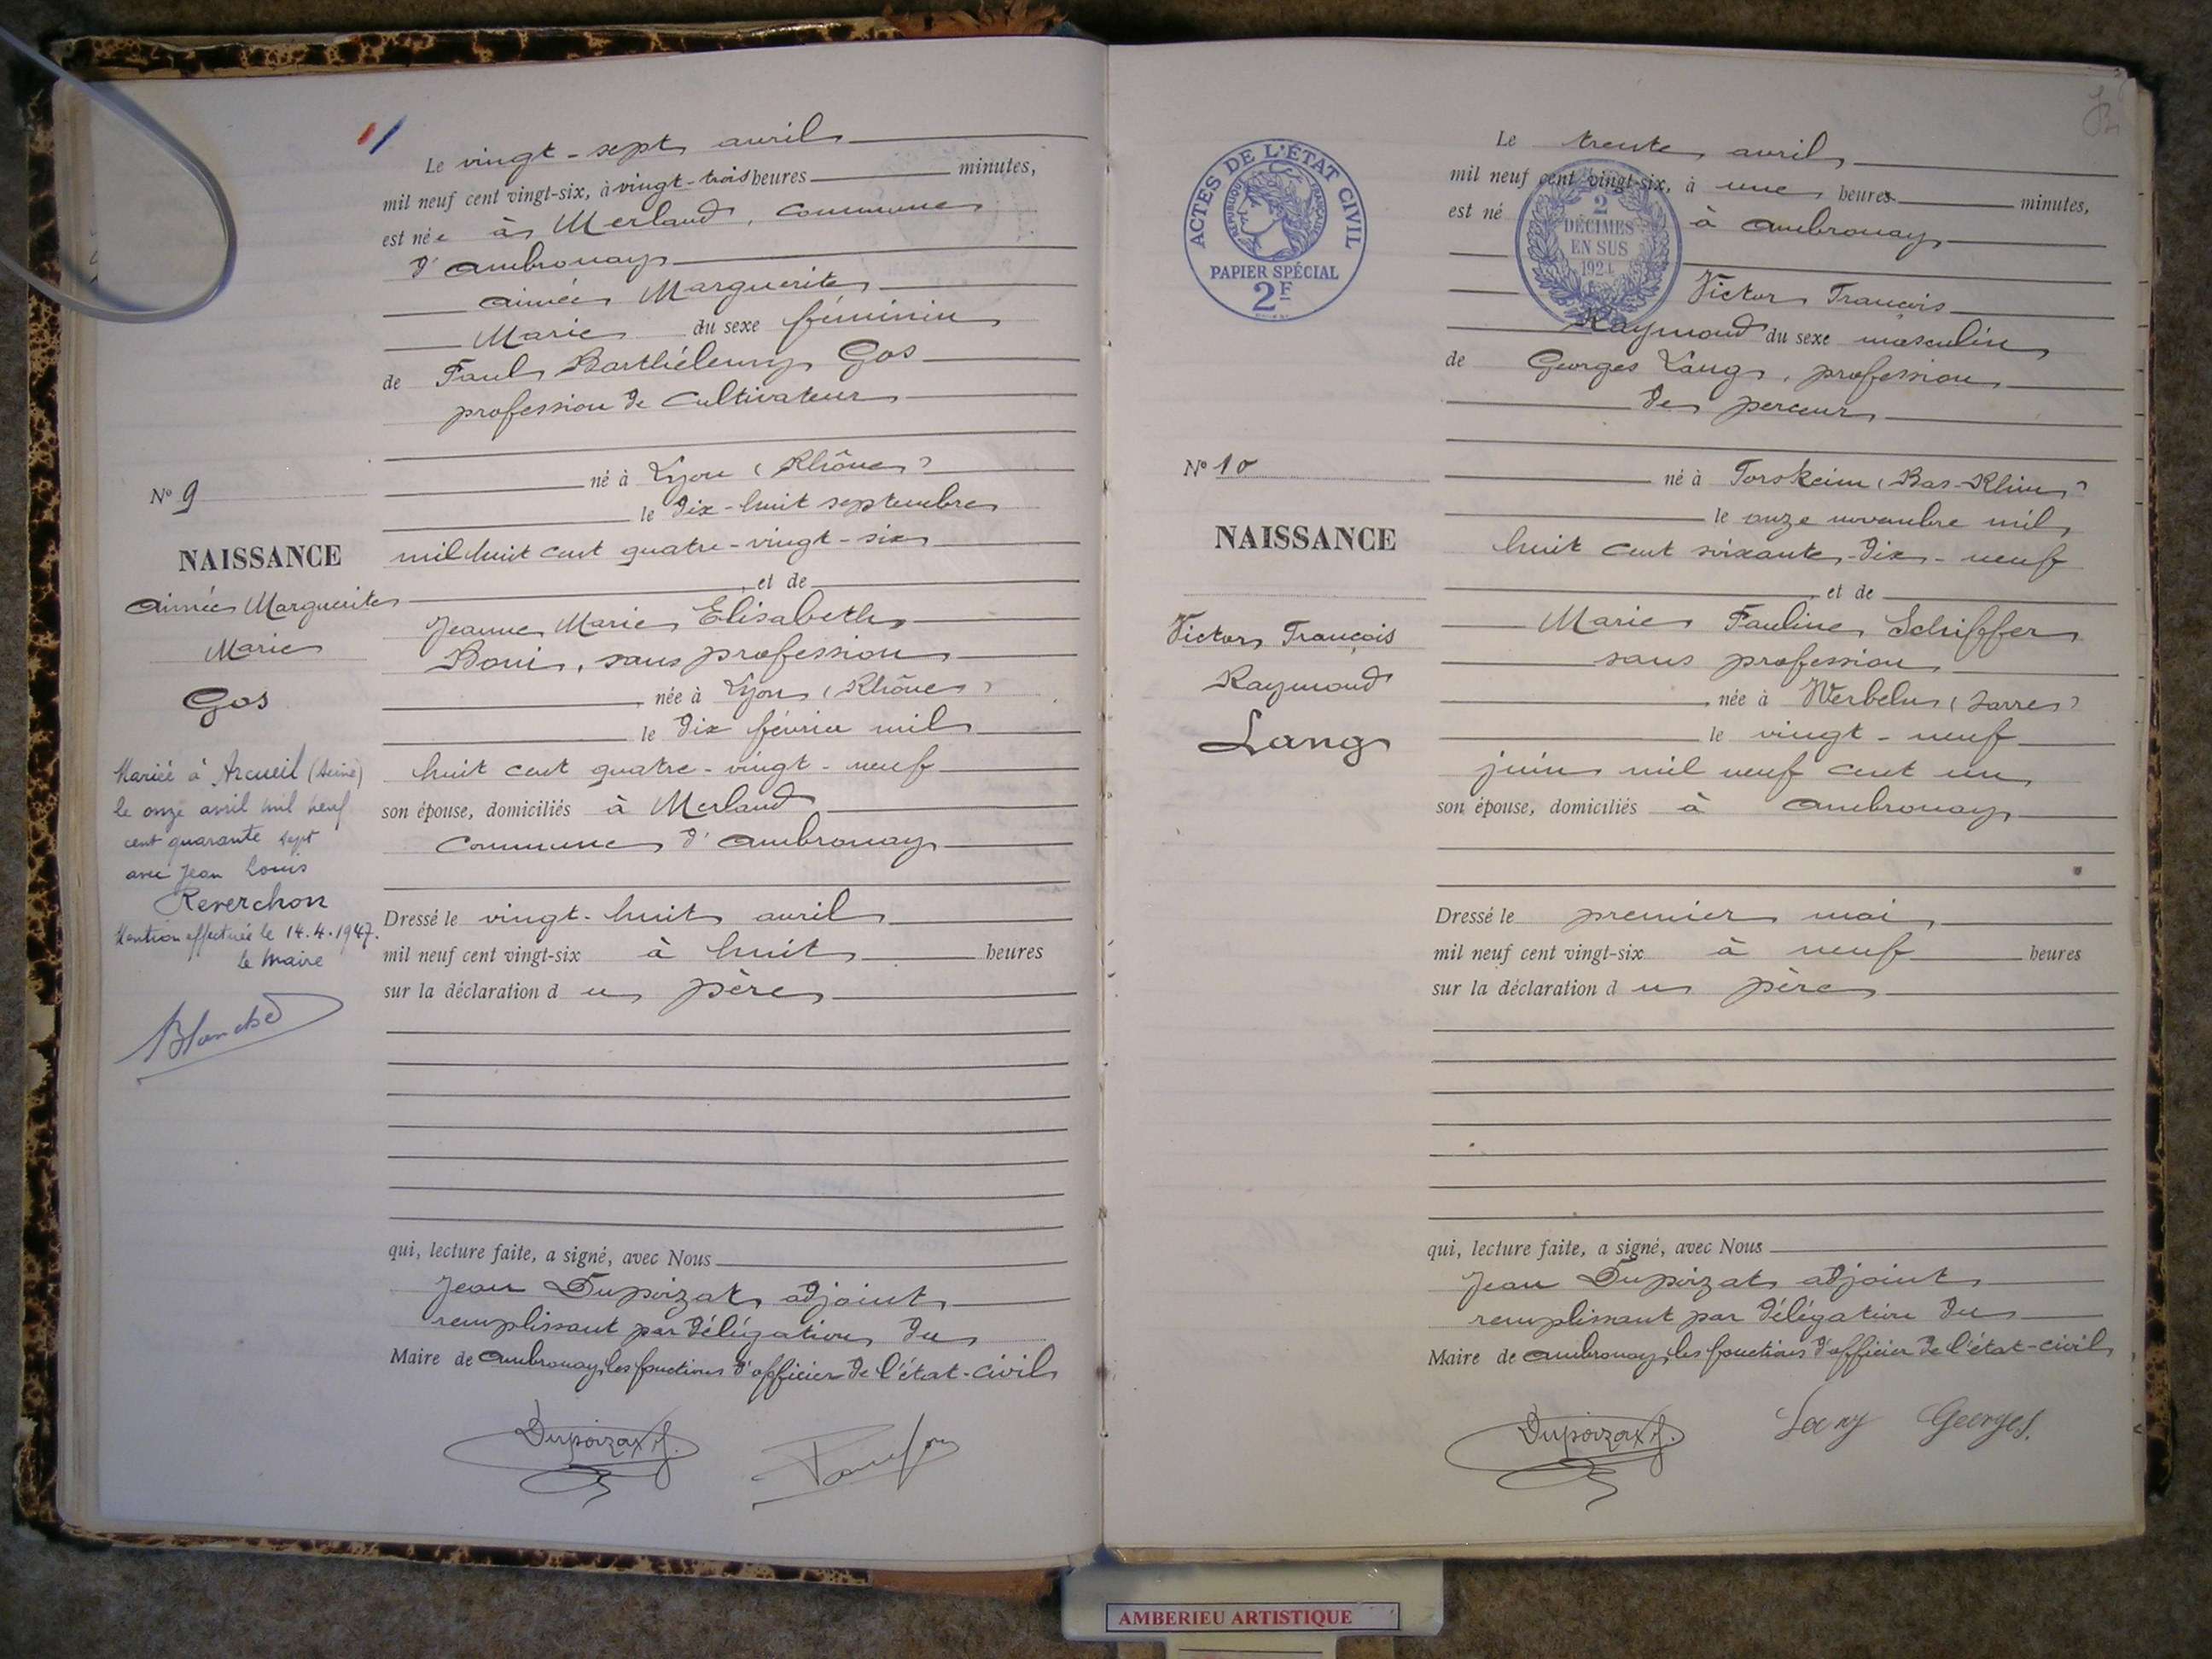 Le vingt-sept avril
mil neuf cent vingt-six, à vingt-trois heures minutes,
est née à Merland, commune
d'ambronay
aimée Marguerite
Marie du sexe féminin
de Paul Barthélemy Gos
profession de cultivateur
né à Lyon (Rhône)
le dix-huit septembre
mil huit cent quatre-vingt-six
et de
Jeanne Marie Elisabeth
Boni, sans profession
née à Lyon (Rhône)
le dix février mil
huit cent quatre-vingt-neuf
son épouse, domiciliés à Merland
commune d'ambronay
Dressé le vingt-huit avril
mil neuf cent vingt-six à huit heures
sur la déclaration du père
qui, lecture faite, a signé, avec Nous
Jean Dupoizat adjoint
remplissant par délégation du
Maire de ambronay, les fonctions d'officier de l'état-civil
Dupoizat J.
N° 9
NAISSANCE
aimée Marguerite
Marie
Gos
Mariée à Arcueil (Seine)
le onze avril mil neuf
cent quarante sept
avec Jean Louis
Reverchon
Mention effectuée le 14.4.1947.
le Maire
Blanchet
ACTES DE L'ÉTAT CIVIL
RÉPUBLIQUE FRANÇAISE
PAPIER SPÉCIAL
2F
2
DÉCIMES
EN SUS
1924
Le trente avril
mil neuf cent vingt-six, à une heures minutes,
est né à ambronay
Victor François
Raymond du sexe masculin
de Georges Lang, profession
de perceur
né à Torskeim (Bas-Rhin)
le onze novembre mil
huit cent soixante-dix-neuf
et de
Marie Pauline Schiffer
sans profession
née à Werbeln (Sarre)
le vingt-neuf
juin mil neuf cent un
son épouse, domiciliés à ambronay
Dressé le premier mai
mil neuf cent vingt-six à neuf heures
sur la déclaration du père
qui, lecture faite, a signé, avec Nous
Jean Dupoizat adjoint
remplissant par délégation du
Maire de ambronay, les fonctions d'officier de l'état-civil
Dupoizat J. Lang Georges.
N° 10
NAISSANCE
Victor François
Raymond
Lang
AMBERIEU ARTISTIQUE